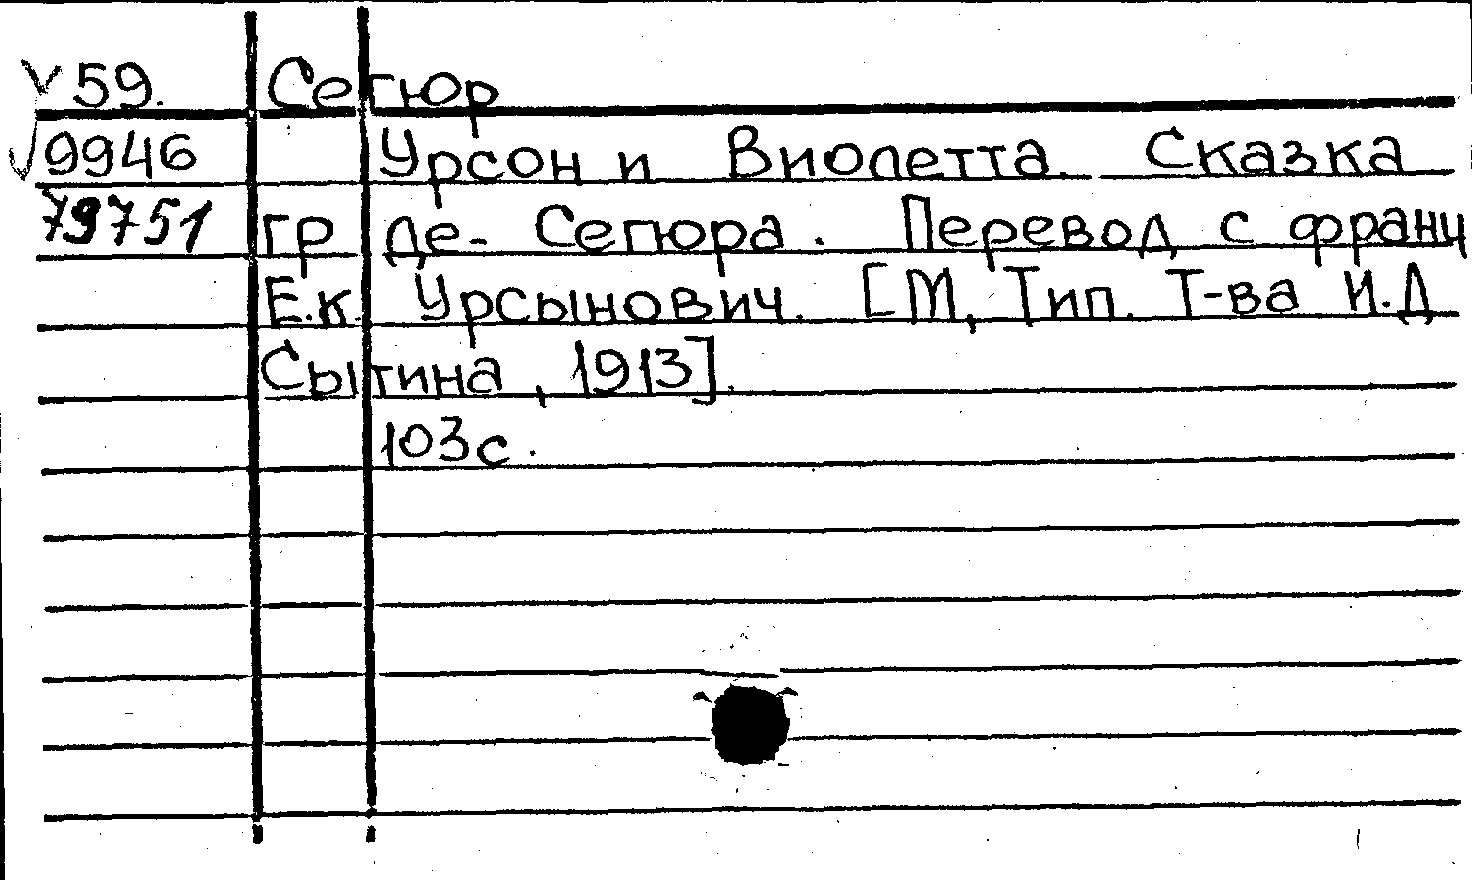 √ 59. Сегюр
√ 9946 Урсон и Виолетта. Сказка
79751 гр де- Сегюра. Перевод с франц
Е.К. Урсынович. [М, Тип. Т-ва И.Д
Сытина, 1913].
103с.